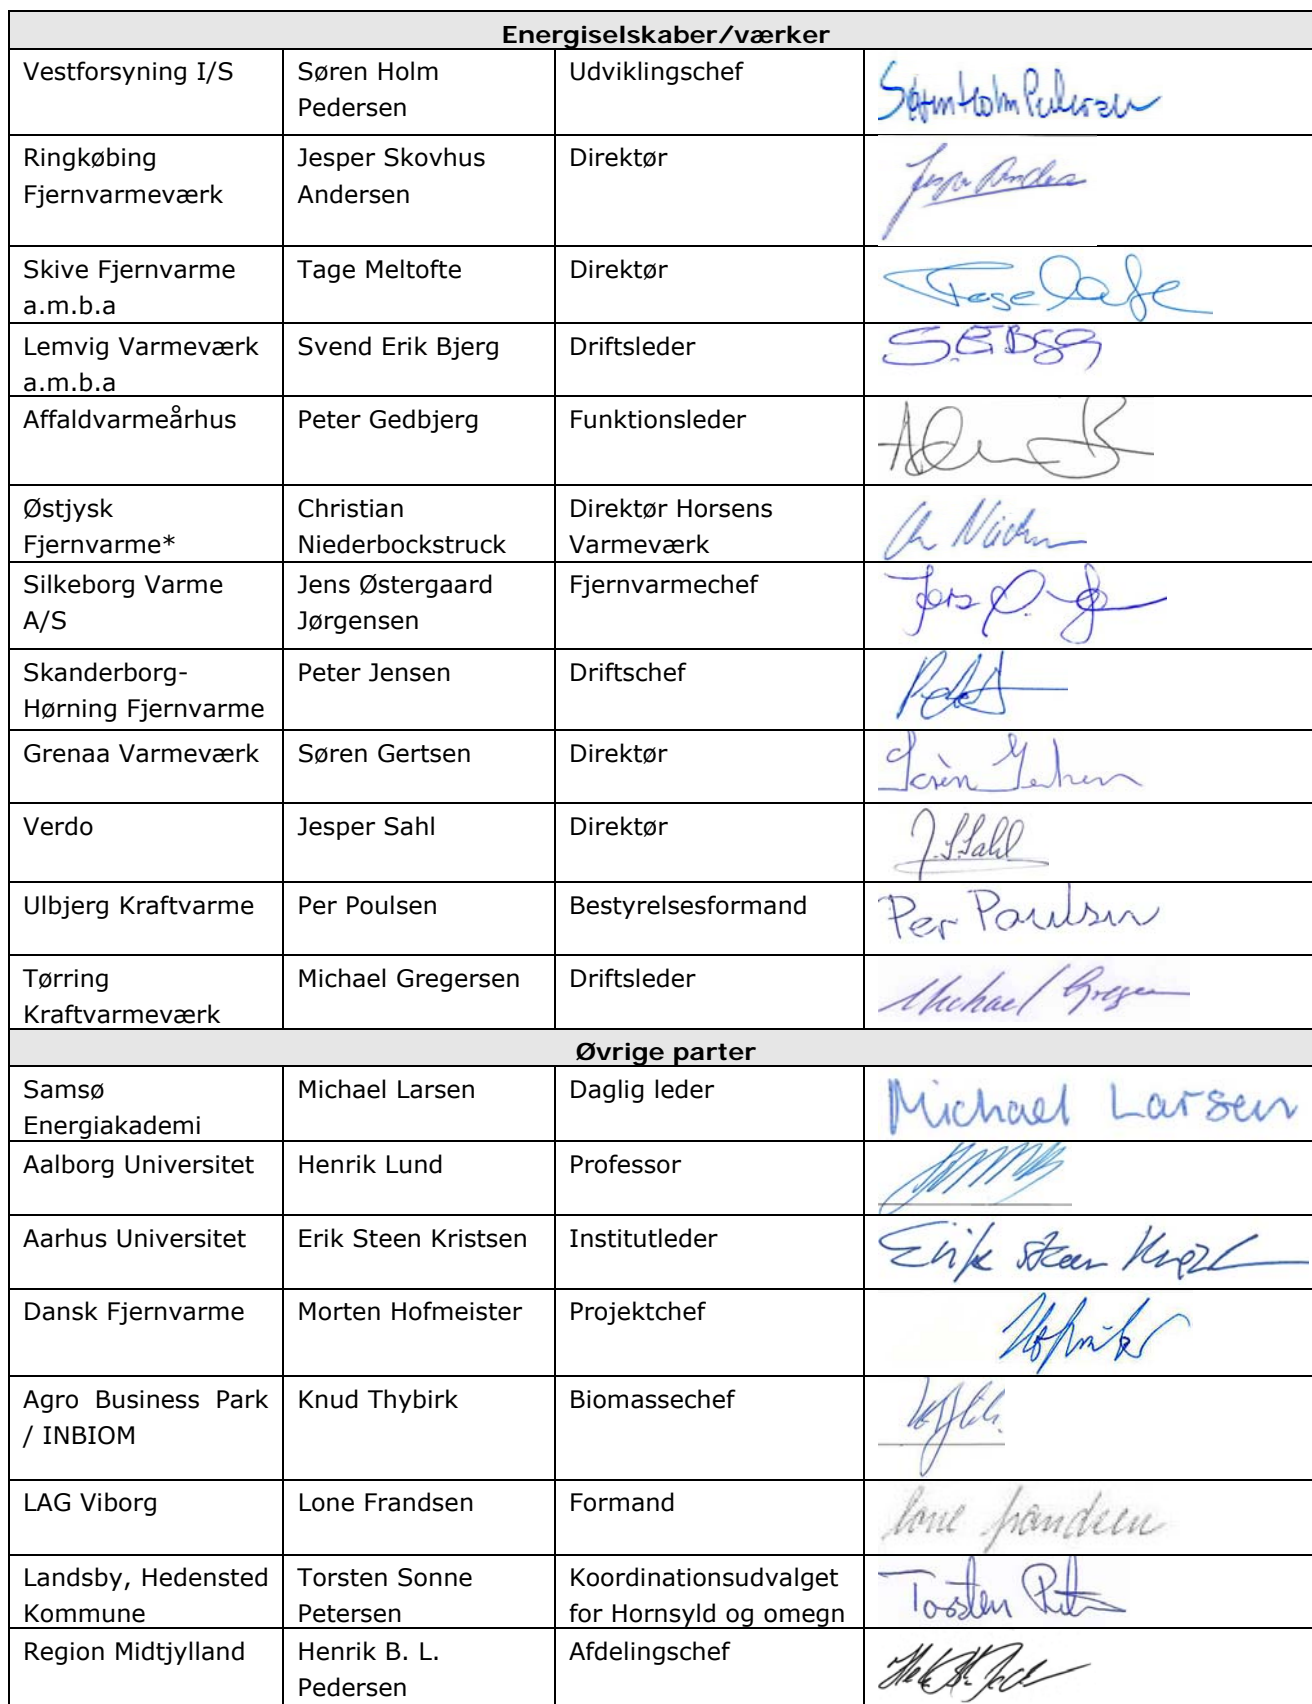 Energiselskaber/værker
Vestforsyning I/S
Søren Holm
Pedersen
Udviklingschef
Søren Holm Pedersen
Ringkøbing
Fjernvarmeværk
Jesper Skovhus
Andersen
Direktør
Skive Fjernvarme
a.m.b.a
Tage Meltofte
Direktør
Lemvig Varmeværk
a.m.b.a
Svend Erik Bjerg
Driftsleder
Affaldvarmeårhus
Peter Gedbjerg
Funktionsleder
Østjysk
Fjernvarme*
Christian
Niederbockstruck
Direktør Horsens
Varmeværk
Silkeborg Varme
A/S
Jens Østergaard
Jørgensen
Fjernvarmechef
Skanderborg-
Hørning Fjernvarme
Peter Jensen
Driftschef
Grenaa Varmeværk
Søren Gertsen
Direktør
Verdo
Jesper Sahl
Direktør
Ulbjerg Kraftvarme
Per Poulsen
Bestyrelsesformand
Per Poulsen
Tørring
Kraftvarmeværk
Michael Gregersen
Driftsleder
Øvrige parter
Samsø
Energiakademi
Michael Larsen
Daglig leder
Michael Larsen
Aalborg Universitet
Henrik Lund
Professor
Aarhus Universitet
Erik Steen Kristsen
Institutleder
Dansk Fjernvarme
Morten Hofmeister
Projektchef
Agro Business Park
/ INBIOM
Knud Thybirk
Biomassechef
LAG Viborg
Lone Frandsen
Formand
Lone Frandsen
Landsby, Hedensted
Kommune
Torsten Sonne
Petersen
Koordinationsudvalget
for Hornsyld og omegn
Region Midtjylland
Henrik B. L.
Pedersen
Afdelingschef